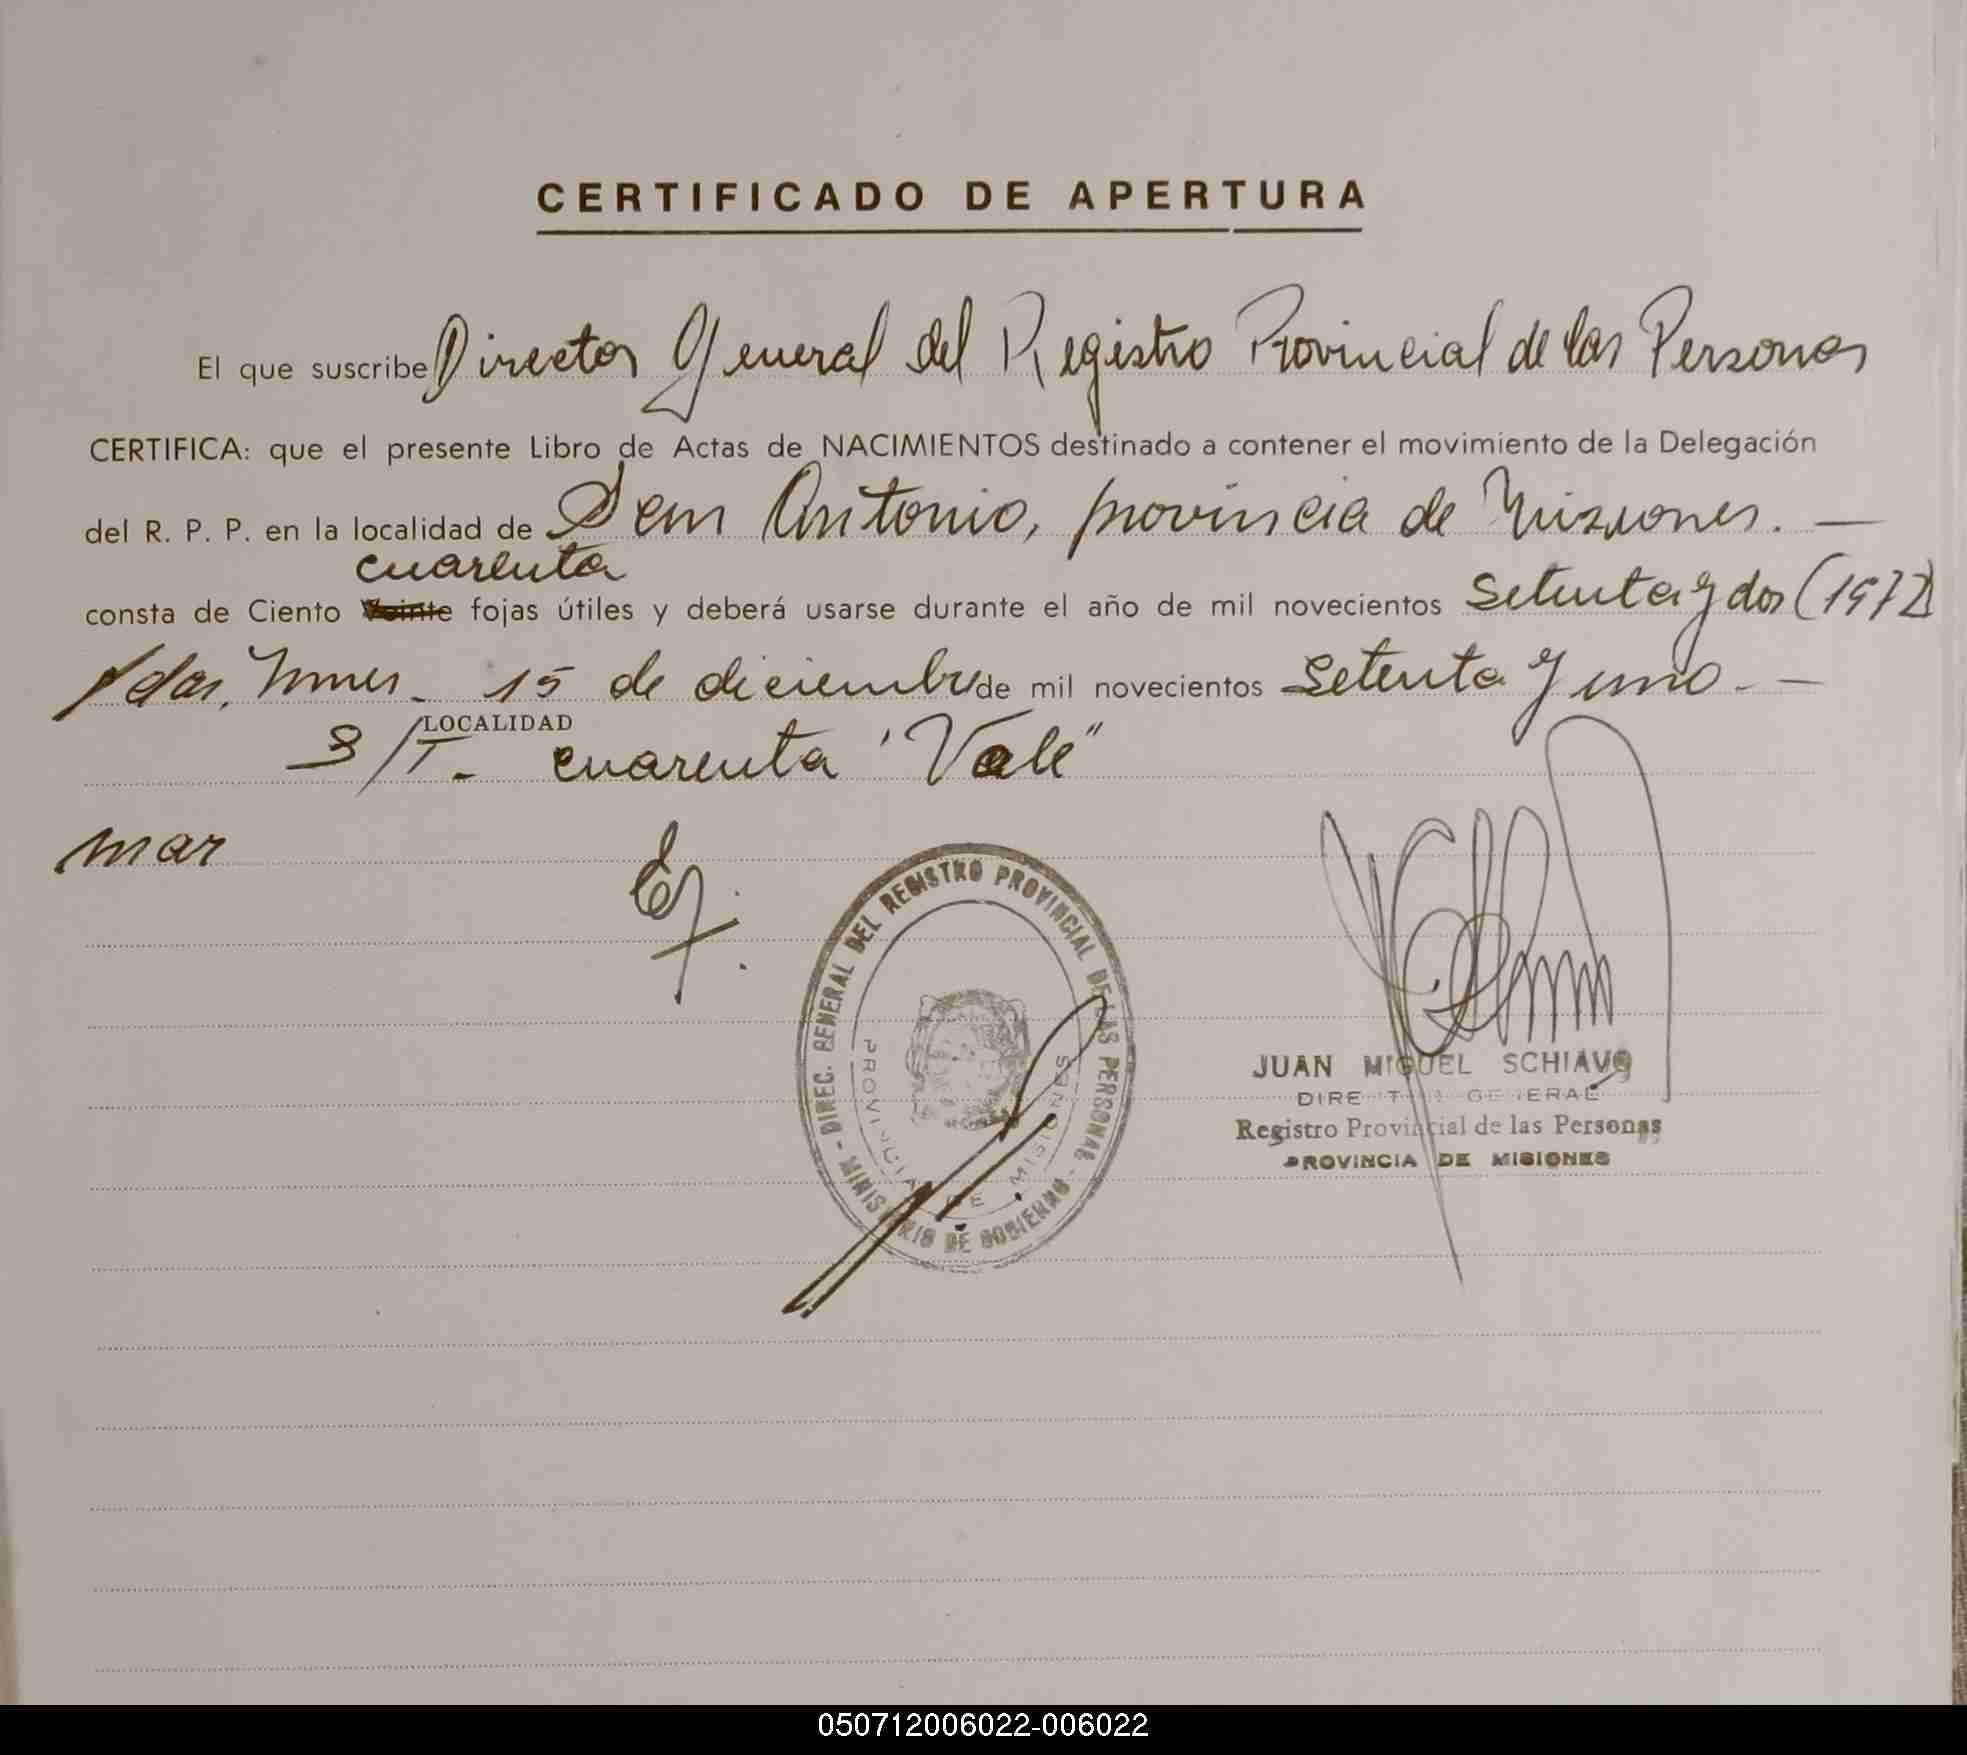 CERTIFICADO DE APERTURA
El que suscribe Director General del Registro Provincial de las Personas
CERTIFICA: que el presente Libro de Actas de NACIMIENTOS destinado a contener el movimiento de la Delegación
del R. P. P. en la localidad de San Antonio, provincia de Misiones. —
cuarenta
consta de Ciento Veinte fojas útiles y deberá usarse durante el año de mil novecientos setenta y dos (1972)
Pdas, Mnes. 15 de diciembre de mil novecientos setenta y uno. —
LOCALIDAD
S/T. cuarenta "Vale"
mar
DIREC. GENERAL DEL REGISTRO PROVINCIAL DE LAS PERSONAS - MINISTERIO DE GOBIERNO -
PROVINCIA DE MISIONES
JUAN MIGUEL SCHIAVO
DIRECTOR GENERAL
Registro Provincial de las Personas
PROVINCIA DE MISIONES
050712006022-006022